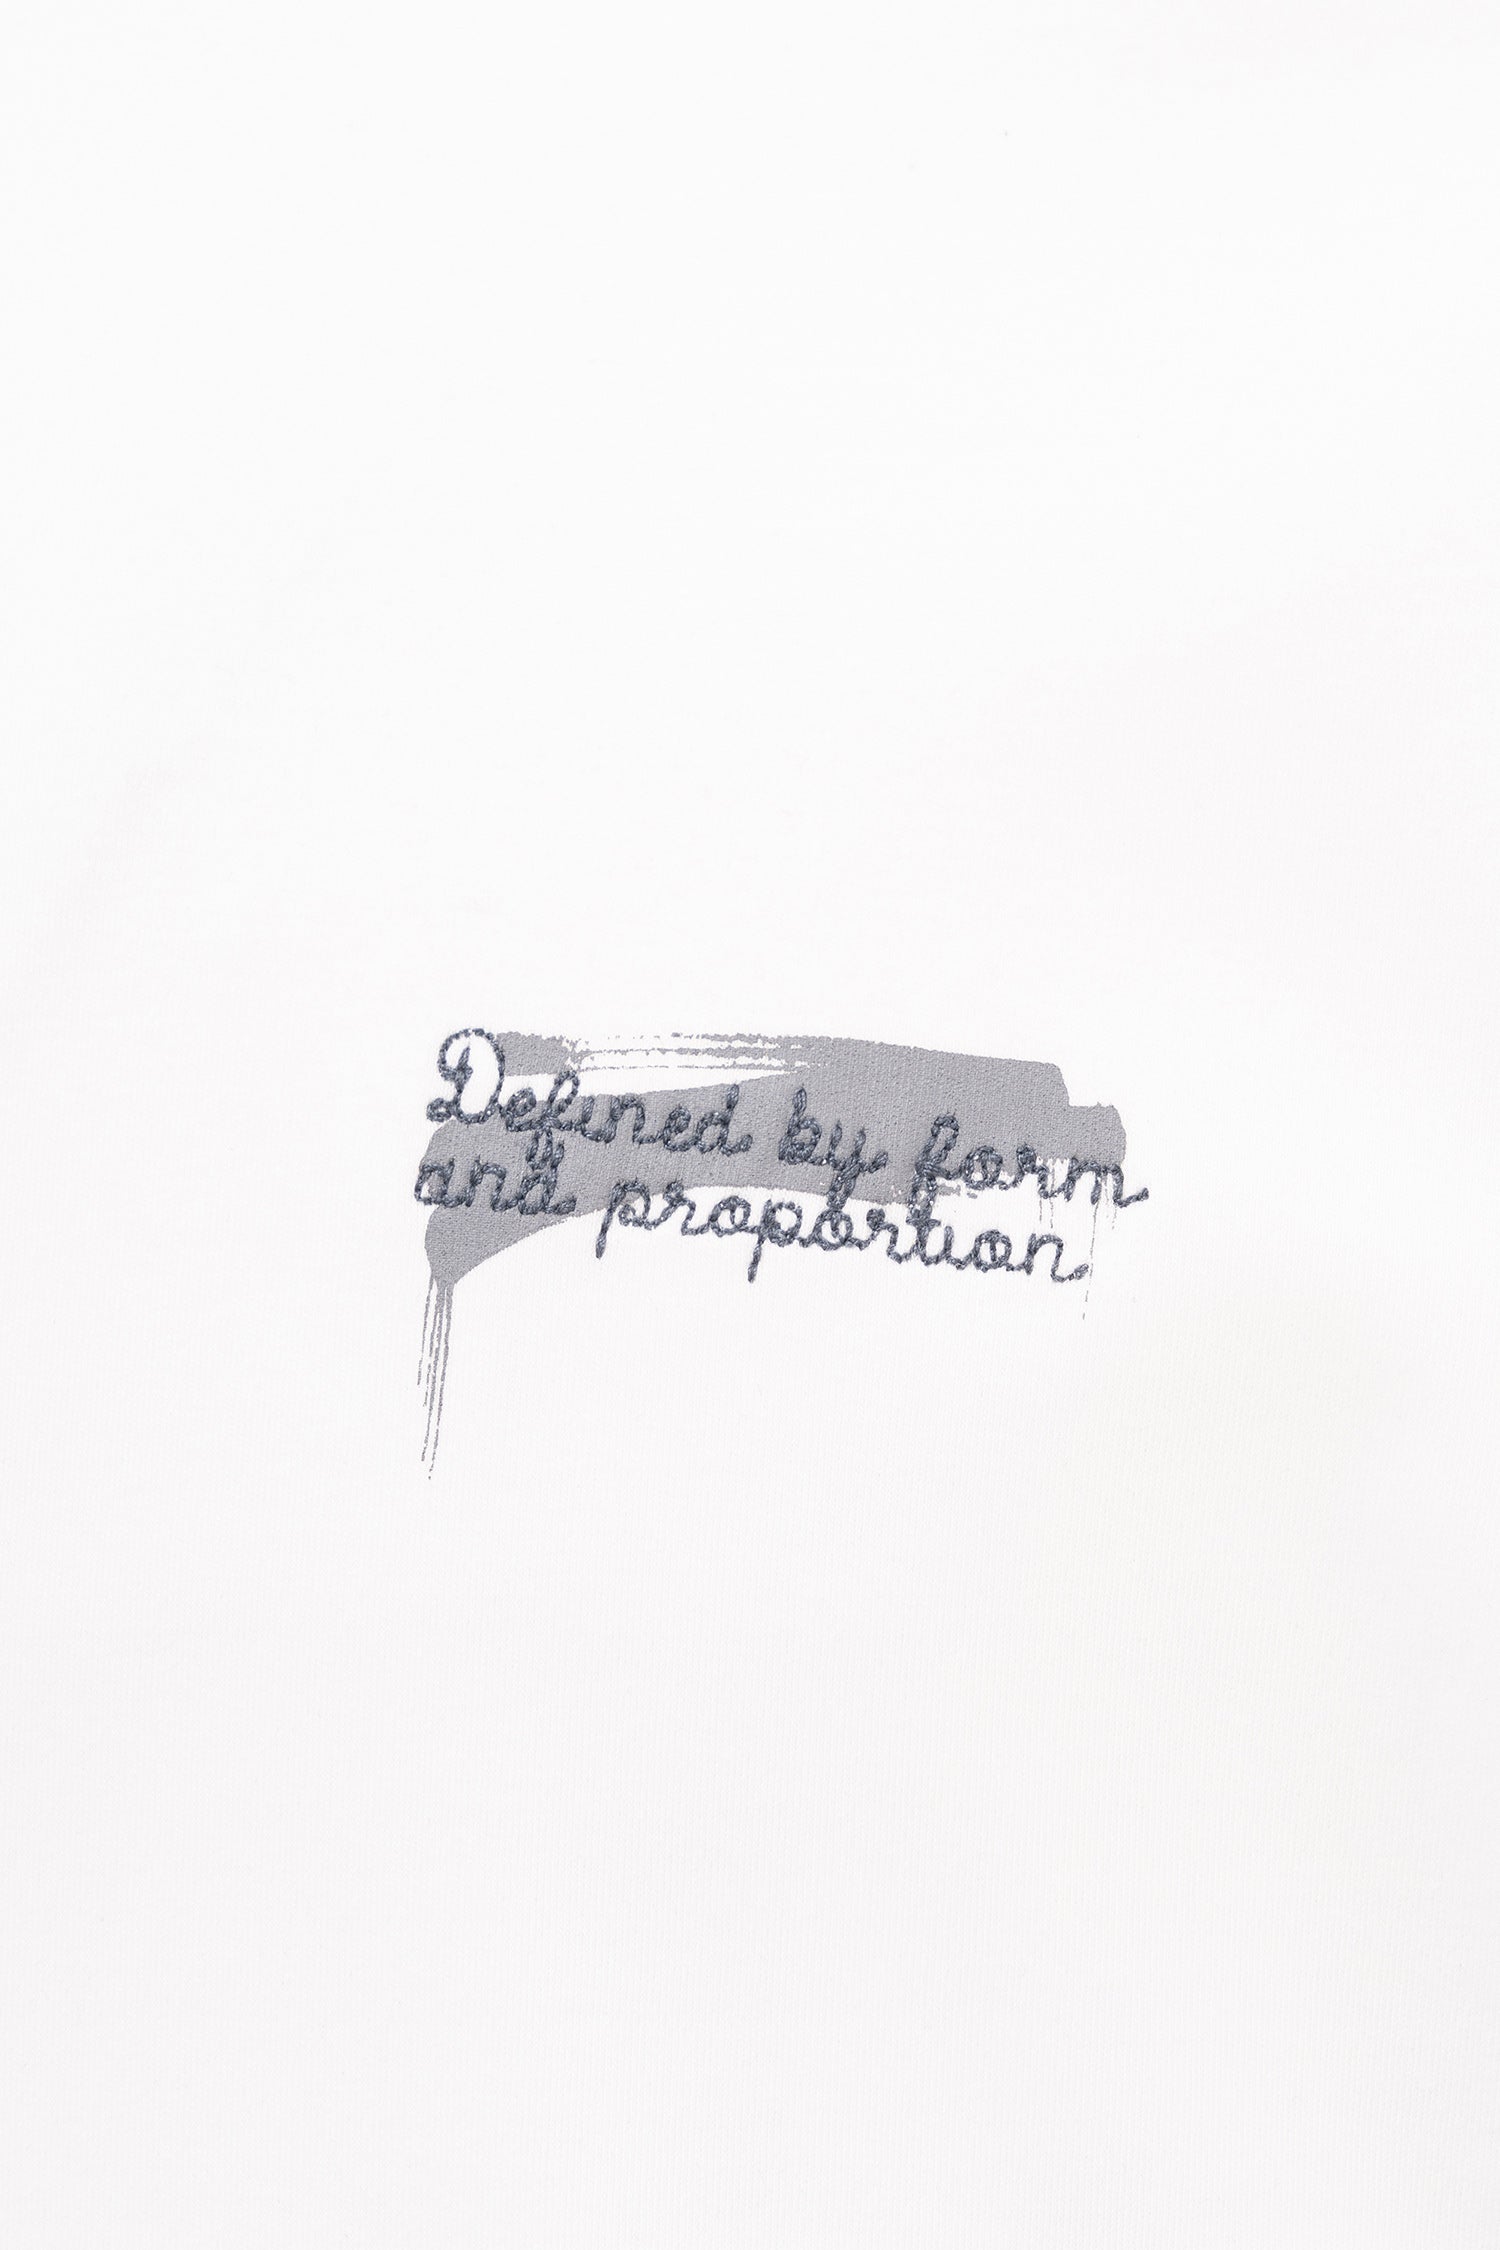 Defined by form
and proportion